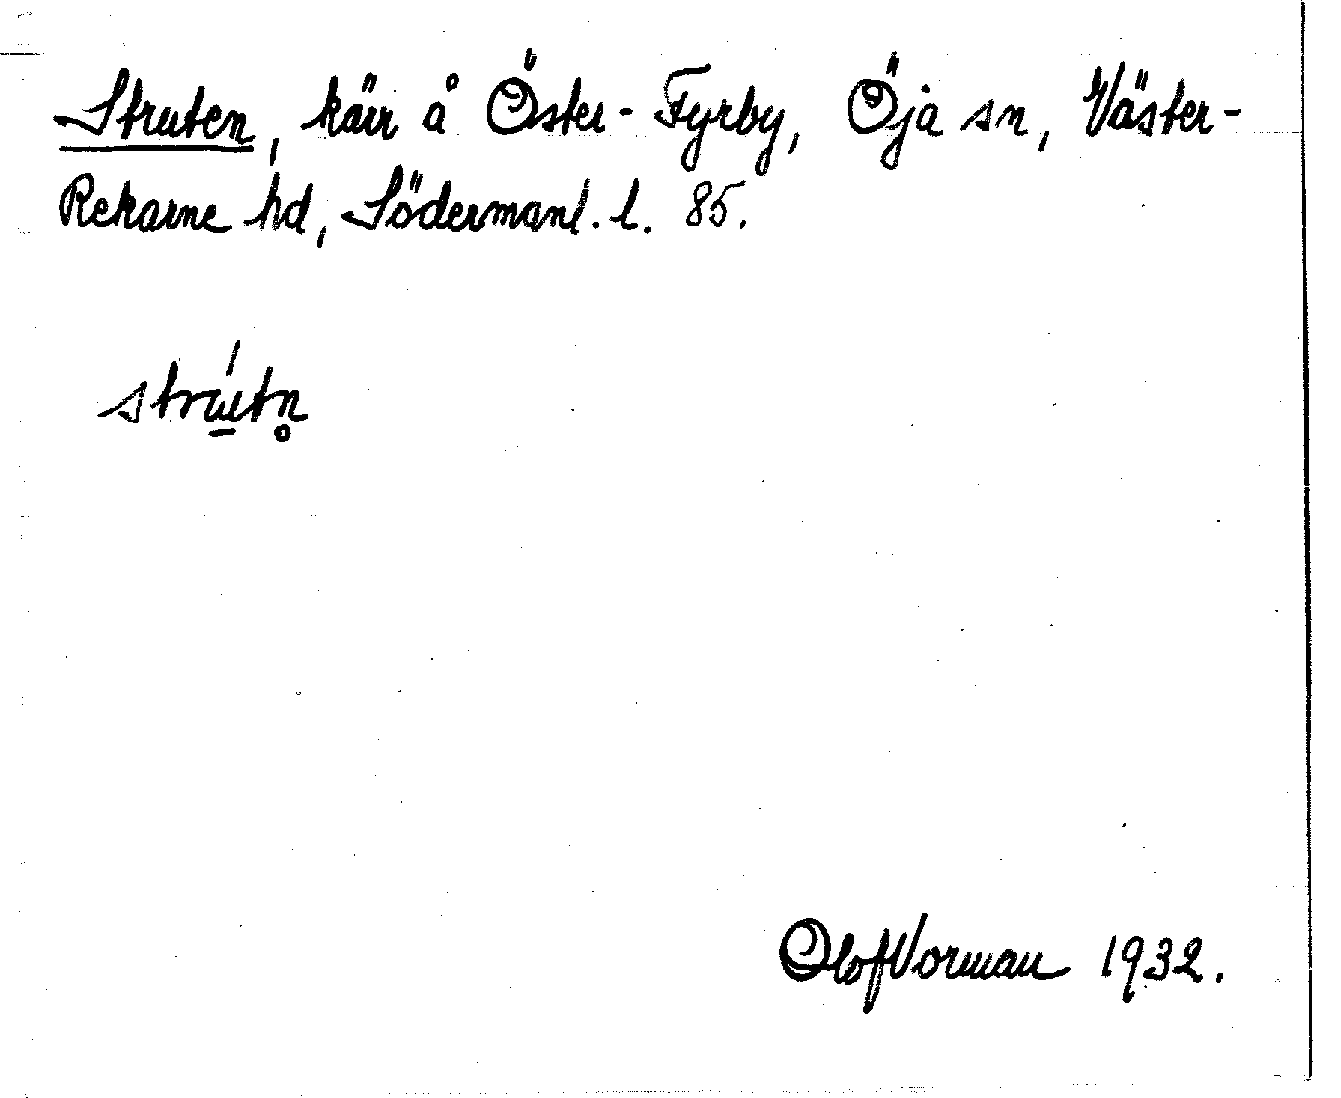 Struten, kärr å Öster-Fyrby, Öja sn, Väster-
Rekarne hd, Södermanl. l. 85.
strú̱tn̥
Olof Vorman 1932.